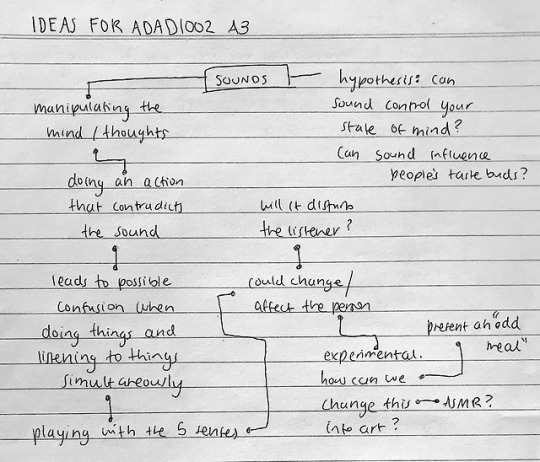 IDEAS FOR ADAD1002 A3
SOUNDS
manipulating the
mind / thoughts
doing an action
that contradicts
the sound
leads to possible
confusion when
doing things and
listening to things
simultaneously
playing with the 5 senses
hypothesis: can
sound control your
state of mind?
Can sound influence
people's taste buds?
will it disturb
the listener?
could change /
affect the person
experimental.
how can we
change this
into art?
ASMR?
present an "odd
meal"